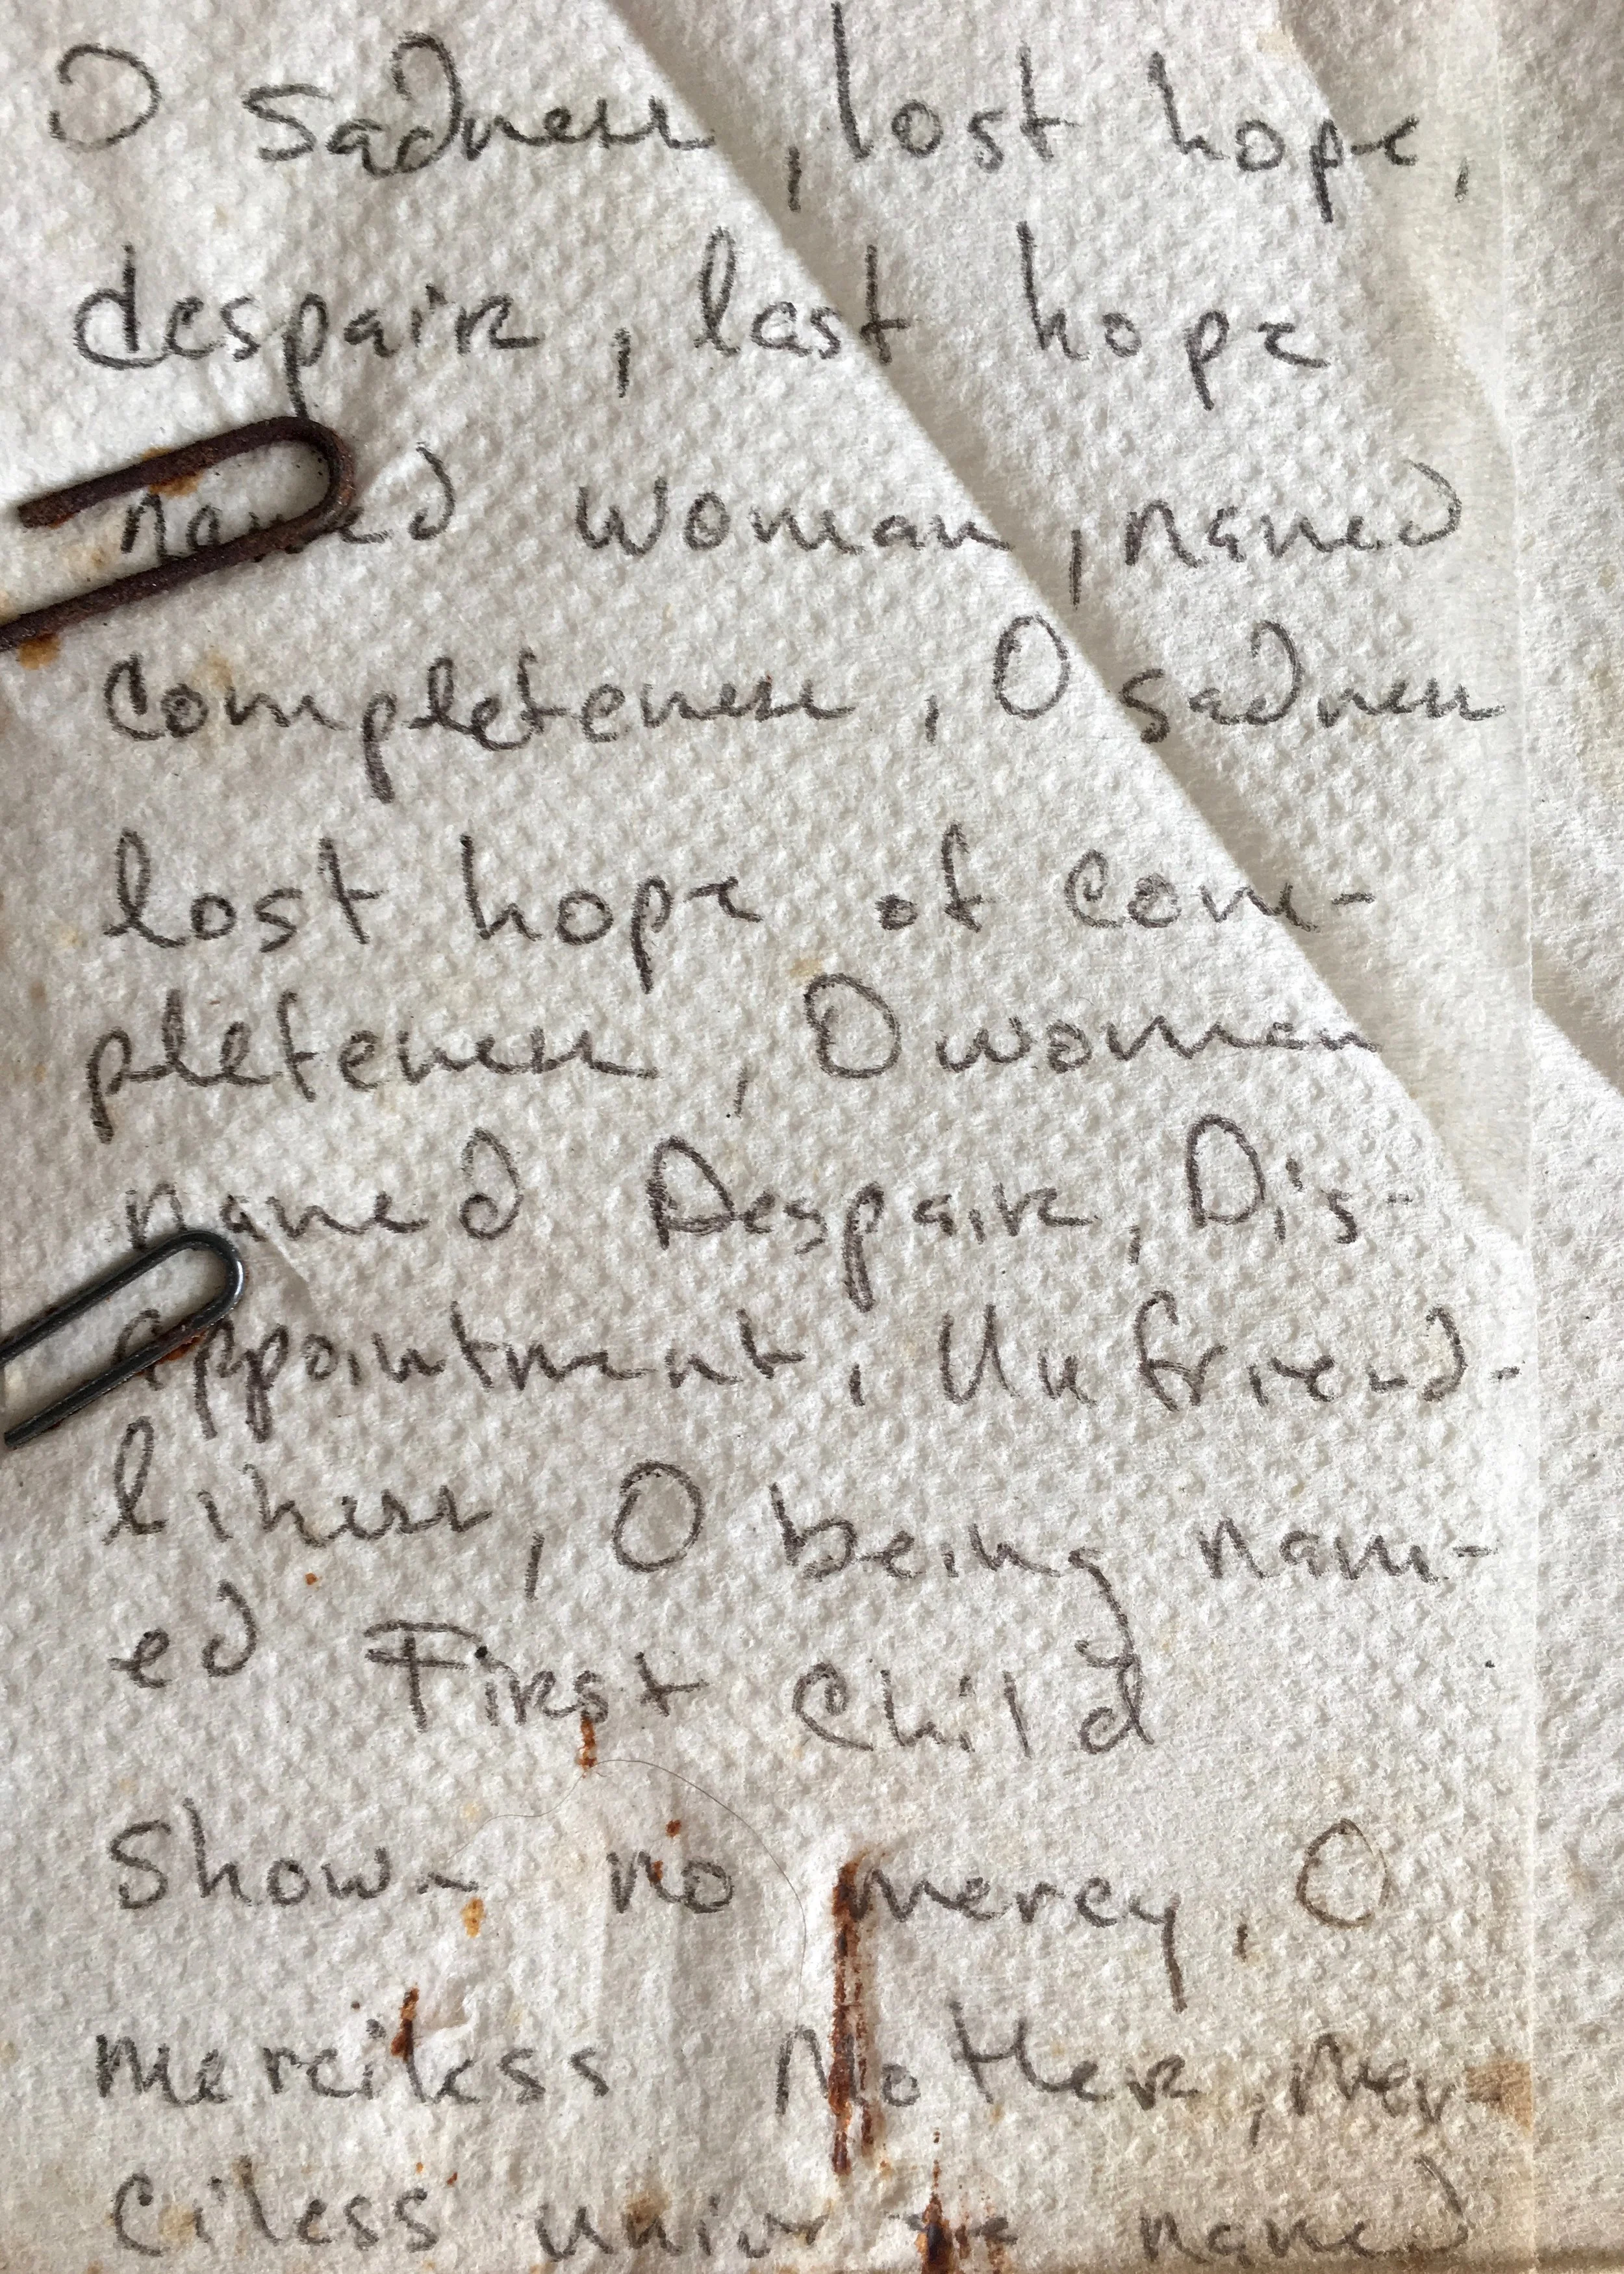 O sadness, lost hope,
despair, last hope
named woman, named
completeness, O sadness
lost hope of com-
pleteness, O woman
named Despair, Dis-
appointment, Unfriend-
liness, O being nam-
ed First Child
Shown no mercy, O
merciless Mother, Mer-
ciless universe named